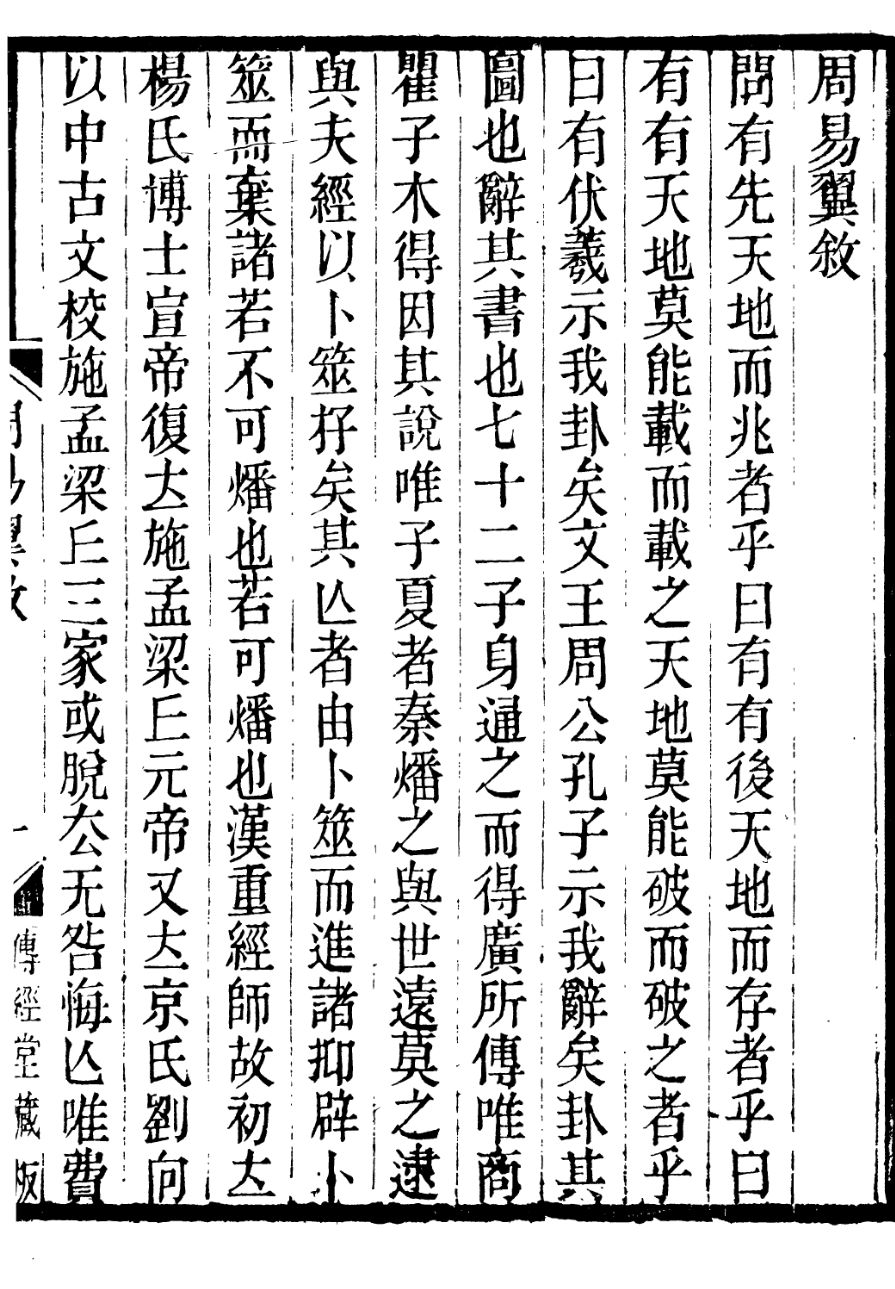 周易翼敘
問有先天地而兆者乎曰有有後天地而存者乎曰
有有天地莫能載而載之天地莫能破而破之者乎
曰有伏羲示我卦矣文王周公孔子示我辭矣卦其
圖也辭其書也七十二子身通之而得廣所傳唯商
瞿子木得因其說唯子夏者秦燔之與世遠莫之逮
與夫經以卜筮存矣其亾者由卜筮而進諸抑辟卜
筮而棄諸若不可燔也若可燔也漢重經師故初立
楊氏博士宣帝復立施孟梁丘元帝又立京氏劉向
以中古文校施孟梁丘三家或脫去无咎悔亾唯費
周易翼敘
一
傳經堂藏版